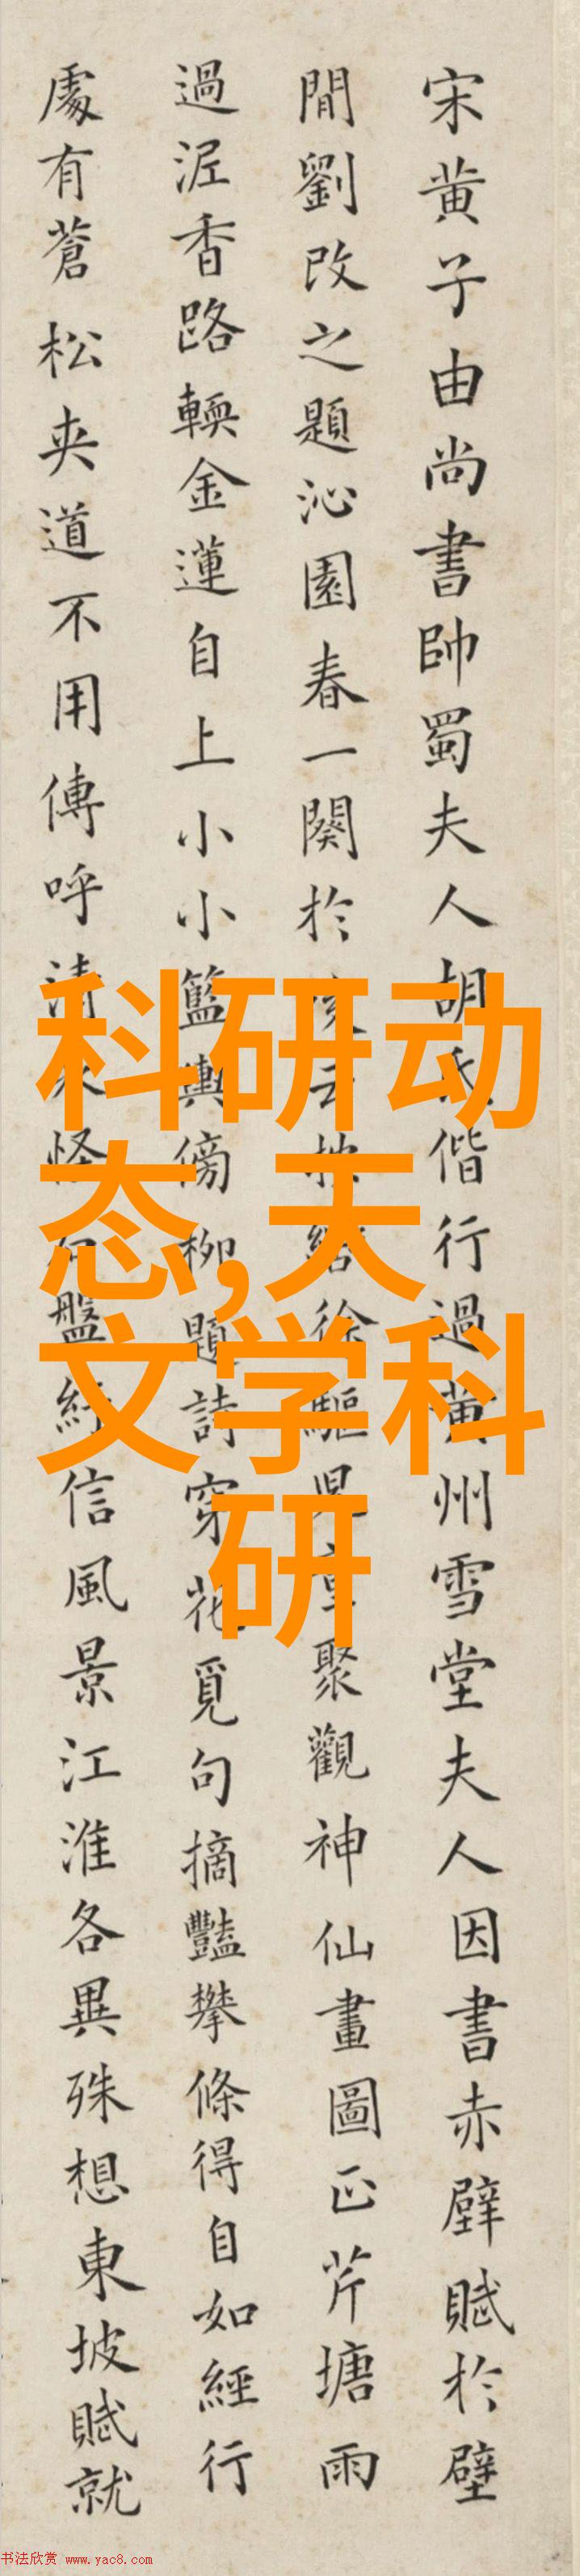 宋黄子由尚書帥蜀夫人胡氏偕行過黄州雪堂夫人因書赤壁賦於壁
間劉改之題沁園春一闋於後云按轡徐驅兒童聚觀神仙畫圖正芹塘雨
過泥香路輭金蓮自上小小籃輿傍柳題詩穿花覓句摘豔攀條得自如經行
處有蒼松夾道不用傳呼清泉怪石盤紆信風景江淮各異殊想東坡賦就
科研动
态,天
文学科
研
书法欣赏 www.yac8.com